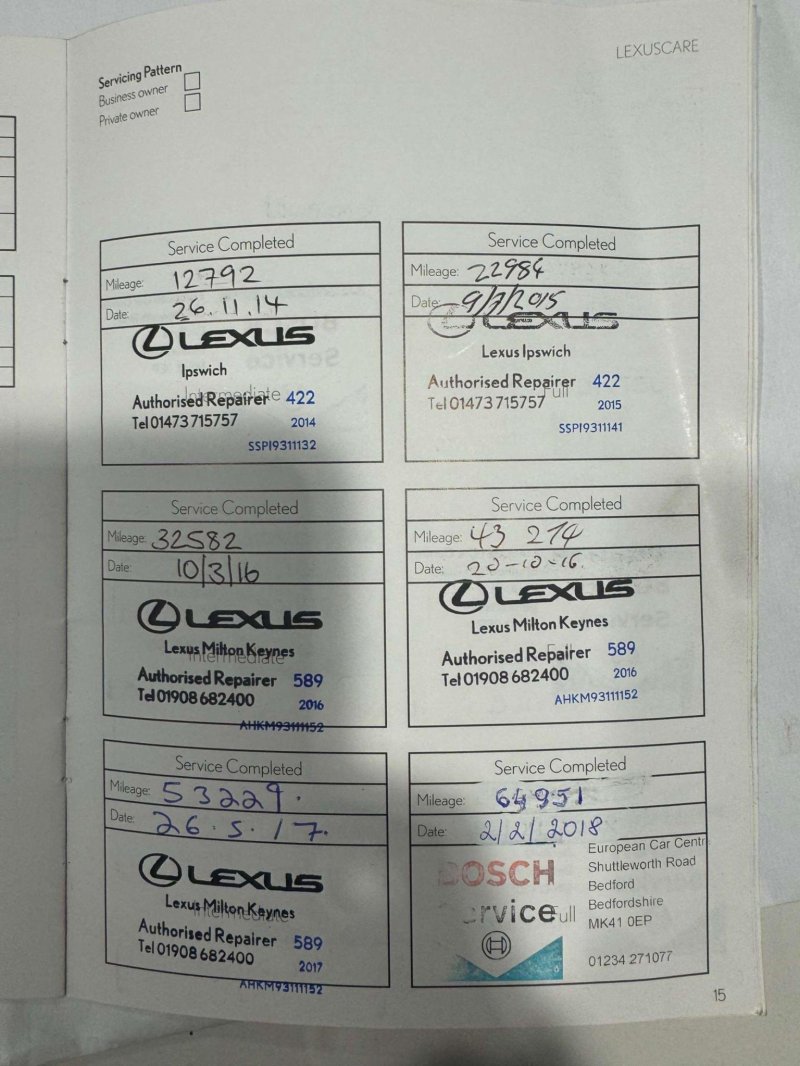 LEXUSCARE
Servicing Pattern
Business owner
Private owner
Service Completed
Mileage: 12792
Date: 26.11.14
LEXUS
Ipswich
Intermediate
Authorised Repairer 422
Tel 01473 715757 2014
SSPI9311132
Service Completed
Mileage: 22984
Date: 9/7/2015
LEXUS
Lexus Ipswich
Authorised Repairer 422
Full
Tel 01473 715757 2015
SSPI9311141
Service Completed
Mileage: 32582
Date: 10/3/16
LEXUS
Lexus Milton Keynes
Intermediate
Authorised Repairer 589
Tel 01908 682400 2016
AHKM93111152
Service Completed
Mileage: 43 274
Date: 20-10-16.
LEXUS
Lexus Milton Keynes
Authorised Repairer 589
Tel 01908 682400 2016
AHKM93111152
Service Completed
Mileage: 53229.
Date: 26.5.17.
LEXUS
Lexus Milton Keynes
Intermediate
Authorised Repairer 589
Tel 01908 682400 2017
AHKM93111152
Service Completed
Mileage: 64951
Date: 2/2/2018
BOSCH
Service
Full
European Car Centr
Shuttleworth Road
Bedford
Bedfordshire
MK41 0EP
01234 271077
15